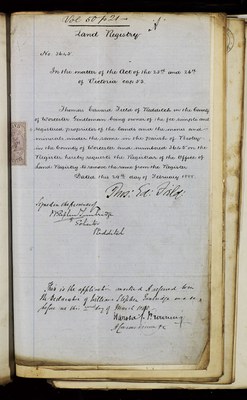 Vol 60 p 21 A
Land Registry
No. 3625.
In the matter of the Act of the 25th and 26th
of Victoria cap 53.
Thomas Edward Field of Redditch in the County
of Worcester Gentleman being owner of the fee simple and
registered proprietor of the lands and the mines and
minerals under the same in the parish of
in the County of Worcester and numbered 3625 on the
Register hereby requests the Registrar of the Office of
Land Registry to remove the same from the Register
Dated this 24th day of February
Thos: Ed: Field
Signed in the presence of
Solicitor
Redditch
This is the application marked A referred to in
the declaration of William Stephen made
before me this 2nd day of March
Harold Browning